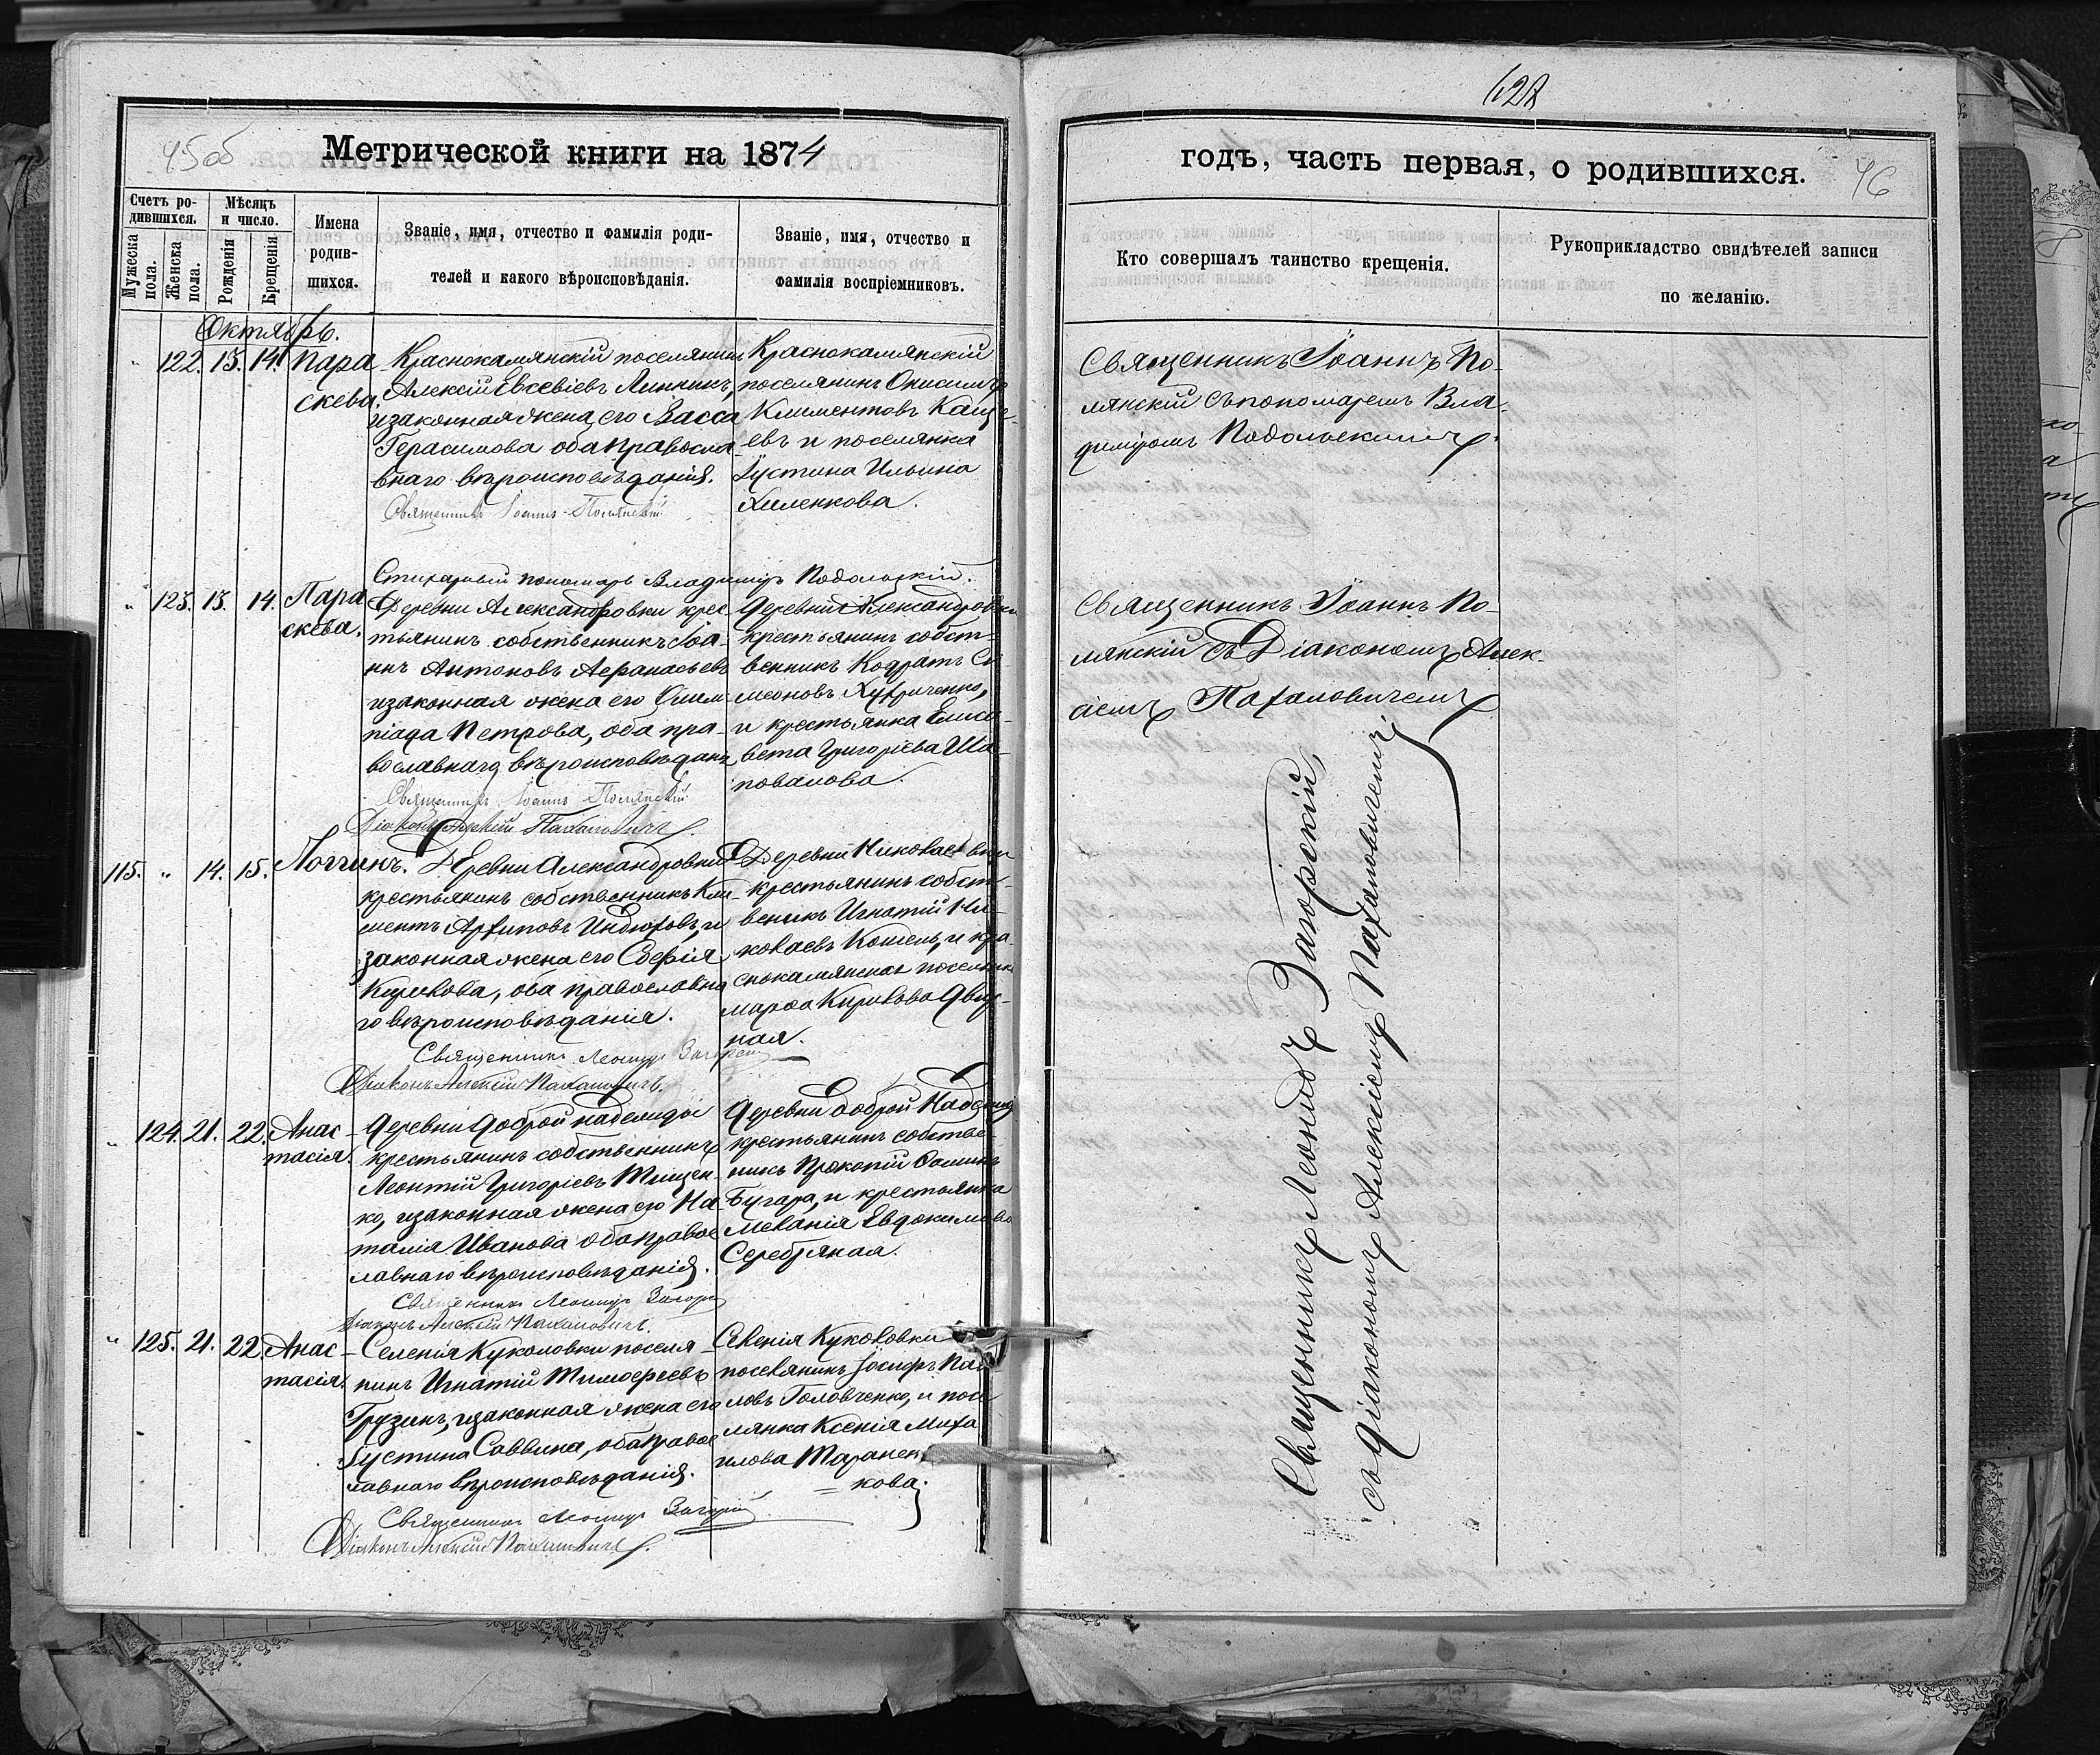 45об
Метрической книги на 1874
Счетъ ро-
дившихся.
Мѣсяцъ
и число.
Мужеска
пола.
Женска
пола.
Рожденія
Крещенія
Имена
родив-
шихся.
Званіе, имя, отчество и фамилія роди-
телей и какого вѣроисповѣданія.
Званіе, имя, отчество и
фамилія воспріемниковъ.
Октябрь.
" 122. 13. 14. Пара
скева.
Краснокамянскій поселянинъ
Алексій Евсевіевъ Линникъ,
и законная жена его Васса
Герасимова оба правосла-
внаго вѣроисповѣданія.
Священникъ Іоаннъ Полянскій
Стихарный пономарь Владиміръ Подольскій.
Краснокамянскій
поселянинъ Онисимъ
Климентовъ Каще-
евъ и поселянка
Іустина Ильина
Хиленкова.
" 123. 13. 14. Пара
скева.
Деревни Александровки крес-
тьянинъ собственникъ Іоа-
ннъ Антоновъ Аѳанасьевъ
и законная жена его Олим-
піада Петрова, оба пра-
вославнаго вѣроисповѣдан.
Священникъ Іоаннъ Полянскій
Діаконъ Алексій Пахаловичъ.
Деревни Александровки
крестьянинъ собст-
венникъ Кодратъ Си
меоновъ
и крестьянка Елиса-
вета Григоріева Ша-
повалова.
115. " 14. 15. Логгинъ.
Деревни Александровки
крестьянинъ собственникъ Кли-
ментъ Архиповъ Индюховъ, и
законная жена его Софія
Кирикова, оба православна
го вѣроисповѣданія.
Священникъ Леонидъ Загорскій
Діаконъ Алексій Пахаловичъ.
Деревни Николаевки
крестьянинъ собст-
веникъ Игнатій Ни-
колаевъ Кошель, и кра-
снокамянская поселянка
Марѳа Кирикова
ная.
" 124. 21. 22. Анас-
тасія.
Деревни Доброй надежды
крестьянинъ собственникъ
Леонтій Григоріевъ Тищен-
ко, и законная жена его На-
талія Иванова оба правос
лавнаго вѣроисповѣданія.
Священникъ Леонидъ Загорскій
Діаконъ Алексій Пахаловичъ.
Деревни доброй Надежды
крестьянинъ собствен-
никъ Прокопій Ѳоминъ
Бугара, и крестьянка
Меланія Евдокимова
Серебряная.
" 125. 21. 22. Анас-
тасія.
Селенія Куколовки поселя-
нинъ Игнатій Тимоѳеевъ
Грузинъ, и законная жена его
Іустина Саввина, оба правос
лавнаго вѣроисповѣданія.
Священникъ Леонидъ Загорскій
Діаконъ Алексій Пахаловичъ.
Селенія Куколовки
поселянинъ Іосифъ Пав
ловъ Головченко, и посе
лянка Ксенія Миха
илова Таранен
кова.
628
годъ, часть первая, о родившихся.
46
Кто совершалъ таинство крещенія.
Рукоприкладство свидѣтелей записи
по желанію.
Священникъ Іоаннъ По-
лянскій съ пономаремъ Вла-
диміромъ Подольскимъ.
Священникъ Іоаннъ По-
лянскій съ Діакономъ Алек-
сіемъ Пахаловичемъ
Священникъ Леонидъ Загорскій,
съ діакономъ Алексіемъ Пахаловичемъ